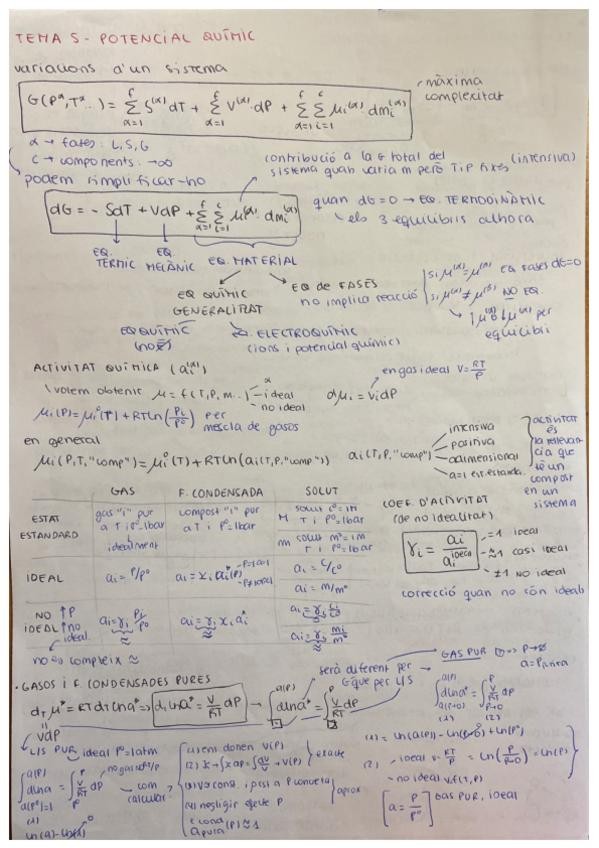 TEMA 5 - POTENCIAL QUÍMIC
variacions d'un sistema
G(Pᵅ,Tᵅ..) = Σ(α=1→f) S⁽ᵅ⁾dT + Σ(α=1→f) V⁽ᵅ⁾·dP + Σ(α=1→f) Σ(i=1→c) μi⁽ᵅ⁾· dmi⁽ᵅ⁾
màxima
complexitat
α → fases: L, S, G
c → components: →∞
podem simplificar-ho
contribució a la G total del
sistema quan variam però T i P fixes (intensiva)
dG = - SdT + VdP + Σ(α=1→f) Σ(i=1→c) μ⁽ᵅ⁾· dmi⁽ᵅ⁾
quan dG=0 → EQ. TERMODINÀMIC
els 3 equilibris alhora
EQ. TÈRMIC
EQ. MECÀNIC
EQ. MATERIAL
EQ QUÍMIC
GENERALITAT
EQ de FASES
no implica reacció
si μ⁽ᵅ⁾=μ⁽ᵝ⁾ EQ FASES dG=0
si μ⁽ᵅ⁾≠μ⁽ᵝ⁾ NO EQ.
per
equilibri
EQ QUÍMIC
ELECTROQUÍMIC
(ions i potencial químic)
ACTIVITAT QUÍMICA (ai⁽ᵅ⁾)
volem obtenir μ = f(T,P,m..) - ideal
- no ideal
dμi = vidP
en gas ideal V = RT/P
μi(P) = μi°(T) + RTln(Pi/P°) per
mescla de gasos
en general
μi(P,T,"comp") = μi°(T) + RTln(ai(T,P,"comp"))
ai(T,P,"comp")
intensiva
positiva
adimensional
a=1 est. estànda.
activitat
és
la rellevàn
cia que
té un
compost
en un
sistema
GAS
F. CONDENSADA
SOLUT
ESTAT
ESTANDARD
gas "i" pur
a T i P°=1bar
idealment
compost "i" pur
a T i P°=1bar
M solut c°=1M
T i P°=1bar
m solut m°=1m
T i P°=1bar
IDEAL
ai = P/P°
ai = xi ai*(P)
ai = c/c°
ai = m/m°
NO
IDEAL
↑P
↑no
ideal
ai = γi Pi/P°
ai = γi xi ai*
ai = γi ci/c°
ai = γi mi/m°
COEF. D'ACTIVITAT
(de no idealitat)
γi = ai/ai ideal
=1 ideal
≈1 casi ideal
≠1 NO ideal
correcció quan no són ideals
· GASOS i F. CONDENSADES PURES
dT μ* = RT dT ln a* ⇒ dT ln a* = V/RT dP → ∫₁^a(P) dlna* = ∫ V/RT dP
vdP
serà diferent per
G que per L i S
GAS PUR
P→0
∫ dlna* = ∫ V/RT dP
a(P→0) P→0
(1) (2)
(1) = ln(a(P)) - ln(P→0) + ln(P°)
(2) , ideal v=RT/P = ln(P/P→0) = ln(P)
no ideal v=f(T,P)
[a = P/P°] GAS PUR, ideal
L i S PUR, ideal P°=1atm
∫ dlna = ∫ V/RT dP
a(P°)=1
(1)
com
calcular?
(2) κ → ∫κdP = ∫dv/v → V(P)
exacte
(3) V a const. i
(4) negligir efecte P
aprox